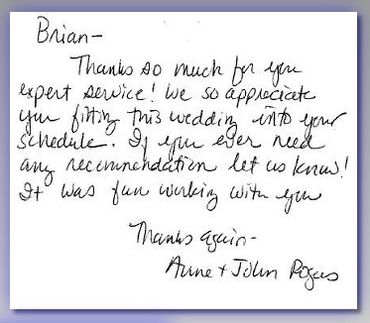 Brian-
Thanks so much for you
expert service! We so appreciate
you fitting this wedding into your
schedule. If you ever need
any recommendation let us know!
It was fun working with you
Thanks again-
Anne + John